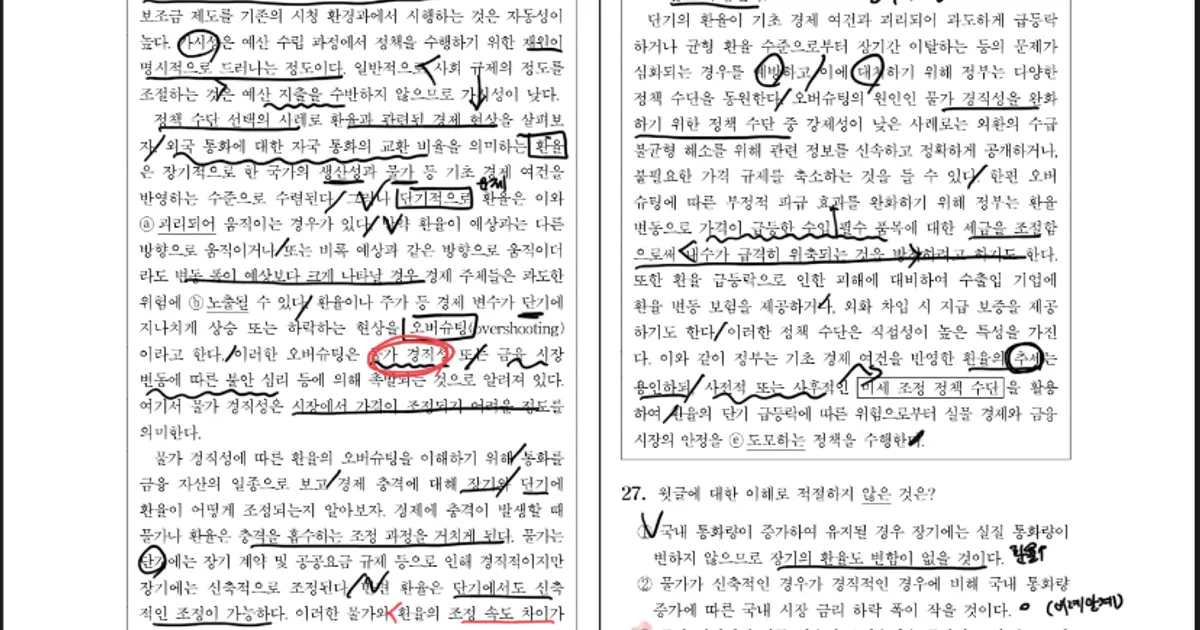 보조금 제도를 기존의 시청 환경과에서 시행하는 것은 자동성이
높다. 가시성은 예산 수립 과정에서 정책을 수행하기 위한 재원이
명시적으로 드러나는 정도이다. 일반적으로 사회 규제의 정도를
조절하는 것은 예산 지출을 수반하지 않으므로 가시성이 낮다.
정책 수단 선택의 사례로 환율과 관련된 경제 현상을 살펴보
자. 외국 통화에 대한 자국 통화의 교환 비율을 의미하는 환율
은 장기적으로 한 국가의 생산성과 물가 등 기초 경제 여건을
반영하는 수준으로 수렴된다. 그러나 단기적으로 환율은 이와
ⓐ괴리되어 움직이는 경우가 있다. 만약 환율이 예상과는 다른
방향으로 움직이거나 또는 비록 예상과 같은 방향으로 움직이더
라도 변동 폭이 예상보다 크게 나타날 경우 경제 주체들은 과도한
위험에 ⓑ노출될 수 있다. 환율이나 주가 등 경제 변수가 단기에
지나치게 상승 또는 하락하는 현상을 오버슈팅(overshooting)
이라고 한다. 이러한 오버슈팅은 물가 경직성 또는 금융 시장
변동에 따른 불안 심리 등에 의해 촉발되는 것으로 알려져 있다.
여기서 물가 경직성은 시장에서 가격이 조정되기 어려운 정도를
의미한다.
물가 경직성에 따른 환율의 오버슈팅을 이해하기 위해 통화를
금융 자산의 일종으로 보고 경제 충격에 대해 장기와 단기에
환율이 어떻게 조정되는지 알아보자. 경제에 충격이 발생할 때
물가나 환율은 충격을 흡수하는 조정 과정을 거치게 된다. 물가는
단기에는 장기 계약 및 공공요금 규제 등으로 인해 경직적이지만
장기에는 신축적으로 조정된다. 반면 환율은 단기에서도 신축
적인 조정이 가능하다. 이러한 물가와 환율의 조정 속도 차이가
단기의 환율이 기초 경제 여건과 괴리되어 과도하게 급등락
하거나 균형 환율 수준으로부터 장기간 이탈하는 등의 문제가
심화되는 경우를 예방하고 이에 대처하기 위해 정부는 다양한
정책 수단을 동원한다. 오버슈팅의 원인인 물가 경직성을 완화
하기 위한 정책 수단 중 강제성이 낮은 사례로는 외환의 수급
불균형 해소를 위해 관련 정보를 신속하고 정확하게 공개하거나,
불필요한 가격 규제를 축소하는 것을 들 수 있다. 한편 오버
슈팅에 따른 부정적 파급 효과를 완화하기 위해 정부는 환율
변동으로 가격이 급등한 수입 필수 품목에 대한 세금을 조절함
으로써 내수가 급격히 위축되는 것을 방지하려고 하기도 한다.
또한 환율 급등락으로 인한 피해에 대비하여 수출입 기업에
환율 변동 보험을 제공하거나, 외화 차입 시 지급 보증을 제공
하기도 한다. 이러한 정책 수단은 직접성이 높은 특성을 가진
다. 이와 같이 정부는 기초 경제 여건을 반영한 환율의 추세는
용인하되, 사전적 또는 사후적인 미세 조정 정책 수단을 활용
하여 환율의 단기 급등락에 따른 위험으로부터 실물 경제와 금융
시장의 안정을 ⓔ도모하는 정책을 수행한다.
27. 윗글에 대한 이해로 적절하지 않은 것은?
① 국내 통화량이 증가하여 유지될 경우 장기에는 실질 통화량이
변하지 않으므로 장기의 환율도 변함이 없을 것이다. 환율↑
② 물가가 신축적인 경우가 경직적인 경우에 비해 국내 통화량
증가에 따른 국내 시장 금리 하락 폭이 작을 것이다.